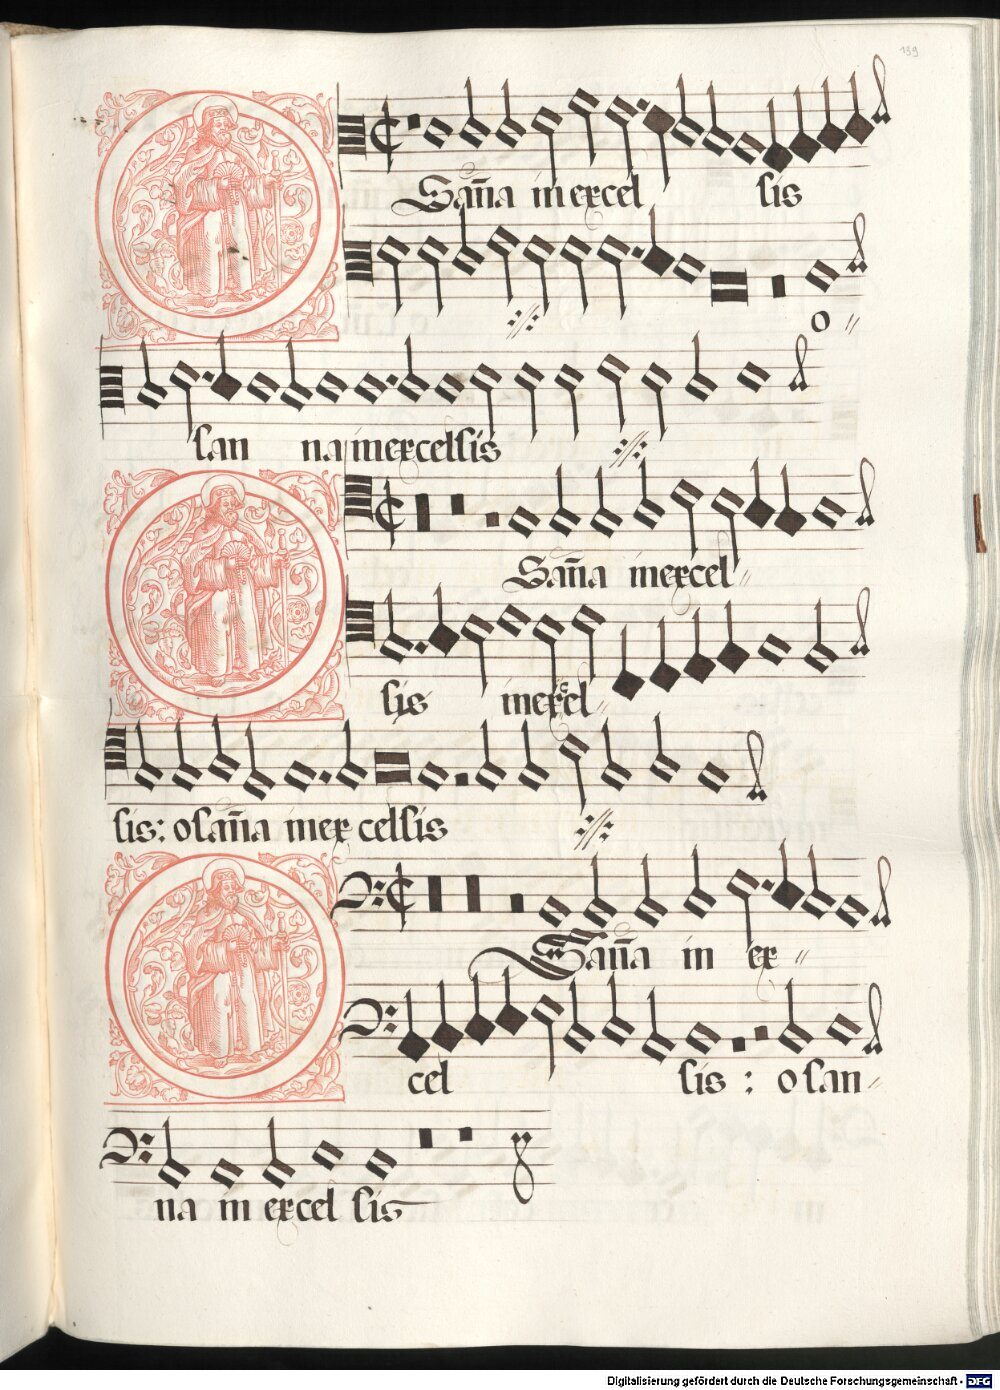 139
Osan̄a in excel sis
o //
san na in excelsis
Osan̄a in excel //
sis in excel //
sis: osan̄a in ex celsis
Osan̄a in ex //
cel sis : o san //
na in excel sis
Digitalisierung gefördert durch die Deutsche Forschungsgemeinschaft - DFG